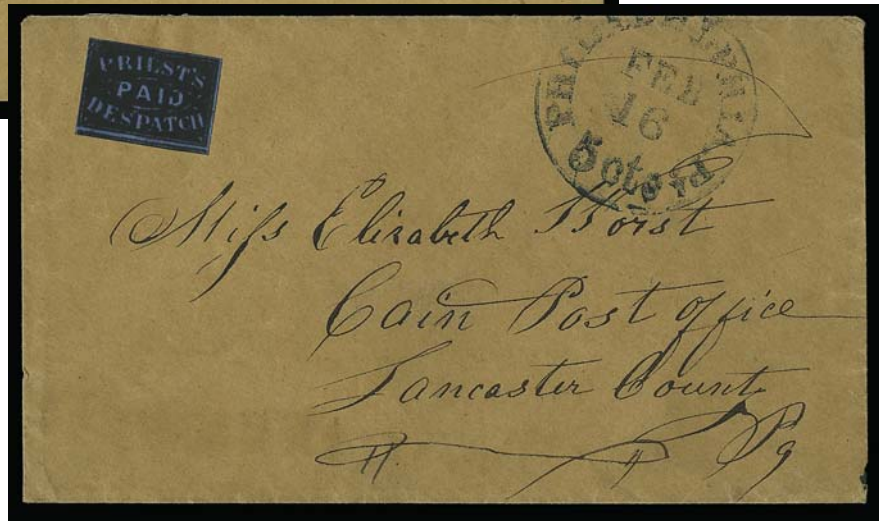 PRIEST'S
PAID
DESPATCH
PHILADELPHIA Pa
FEB
16
5 cts
Miss Elizabeth Horst
Cain Post office
Lancaster County
Pa